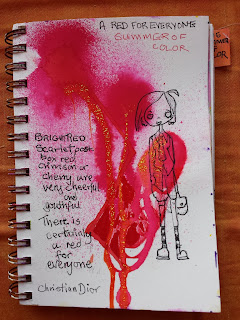 A RED FOR EVERYONE
SUMMER OF
COLOR
BRIGHT RED
Scarlet, post
box red,
crimson or
cherry, are
very cheerful
and
youthful.
There is
certainly
a red
for
everyone
Christian Dior
OF
COLOR